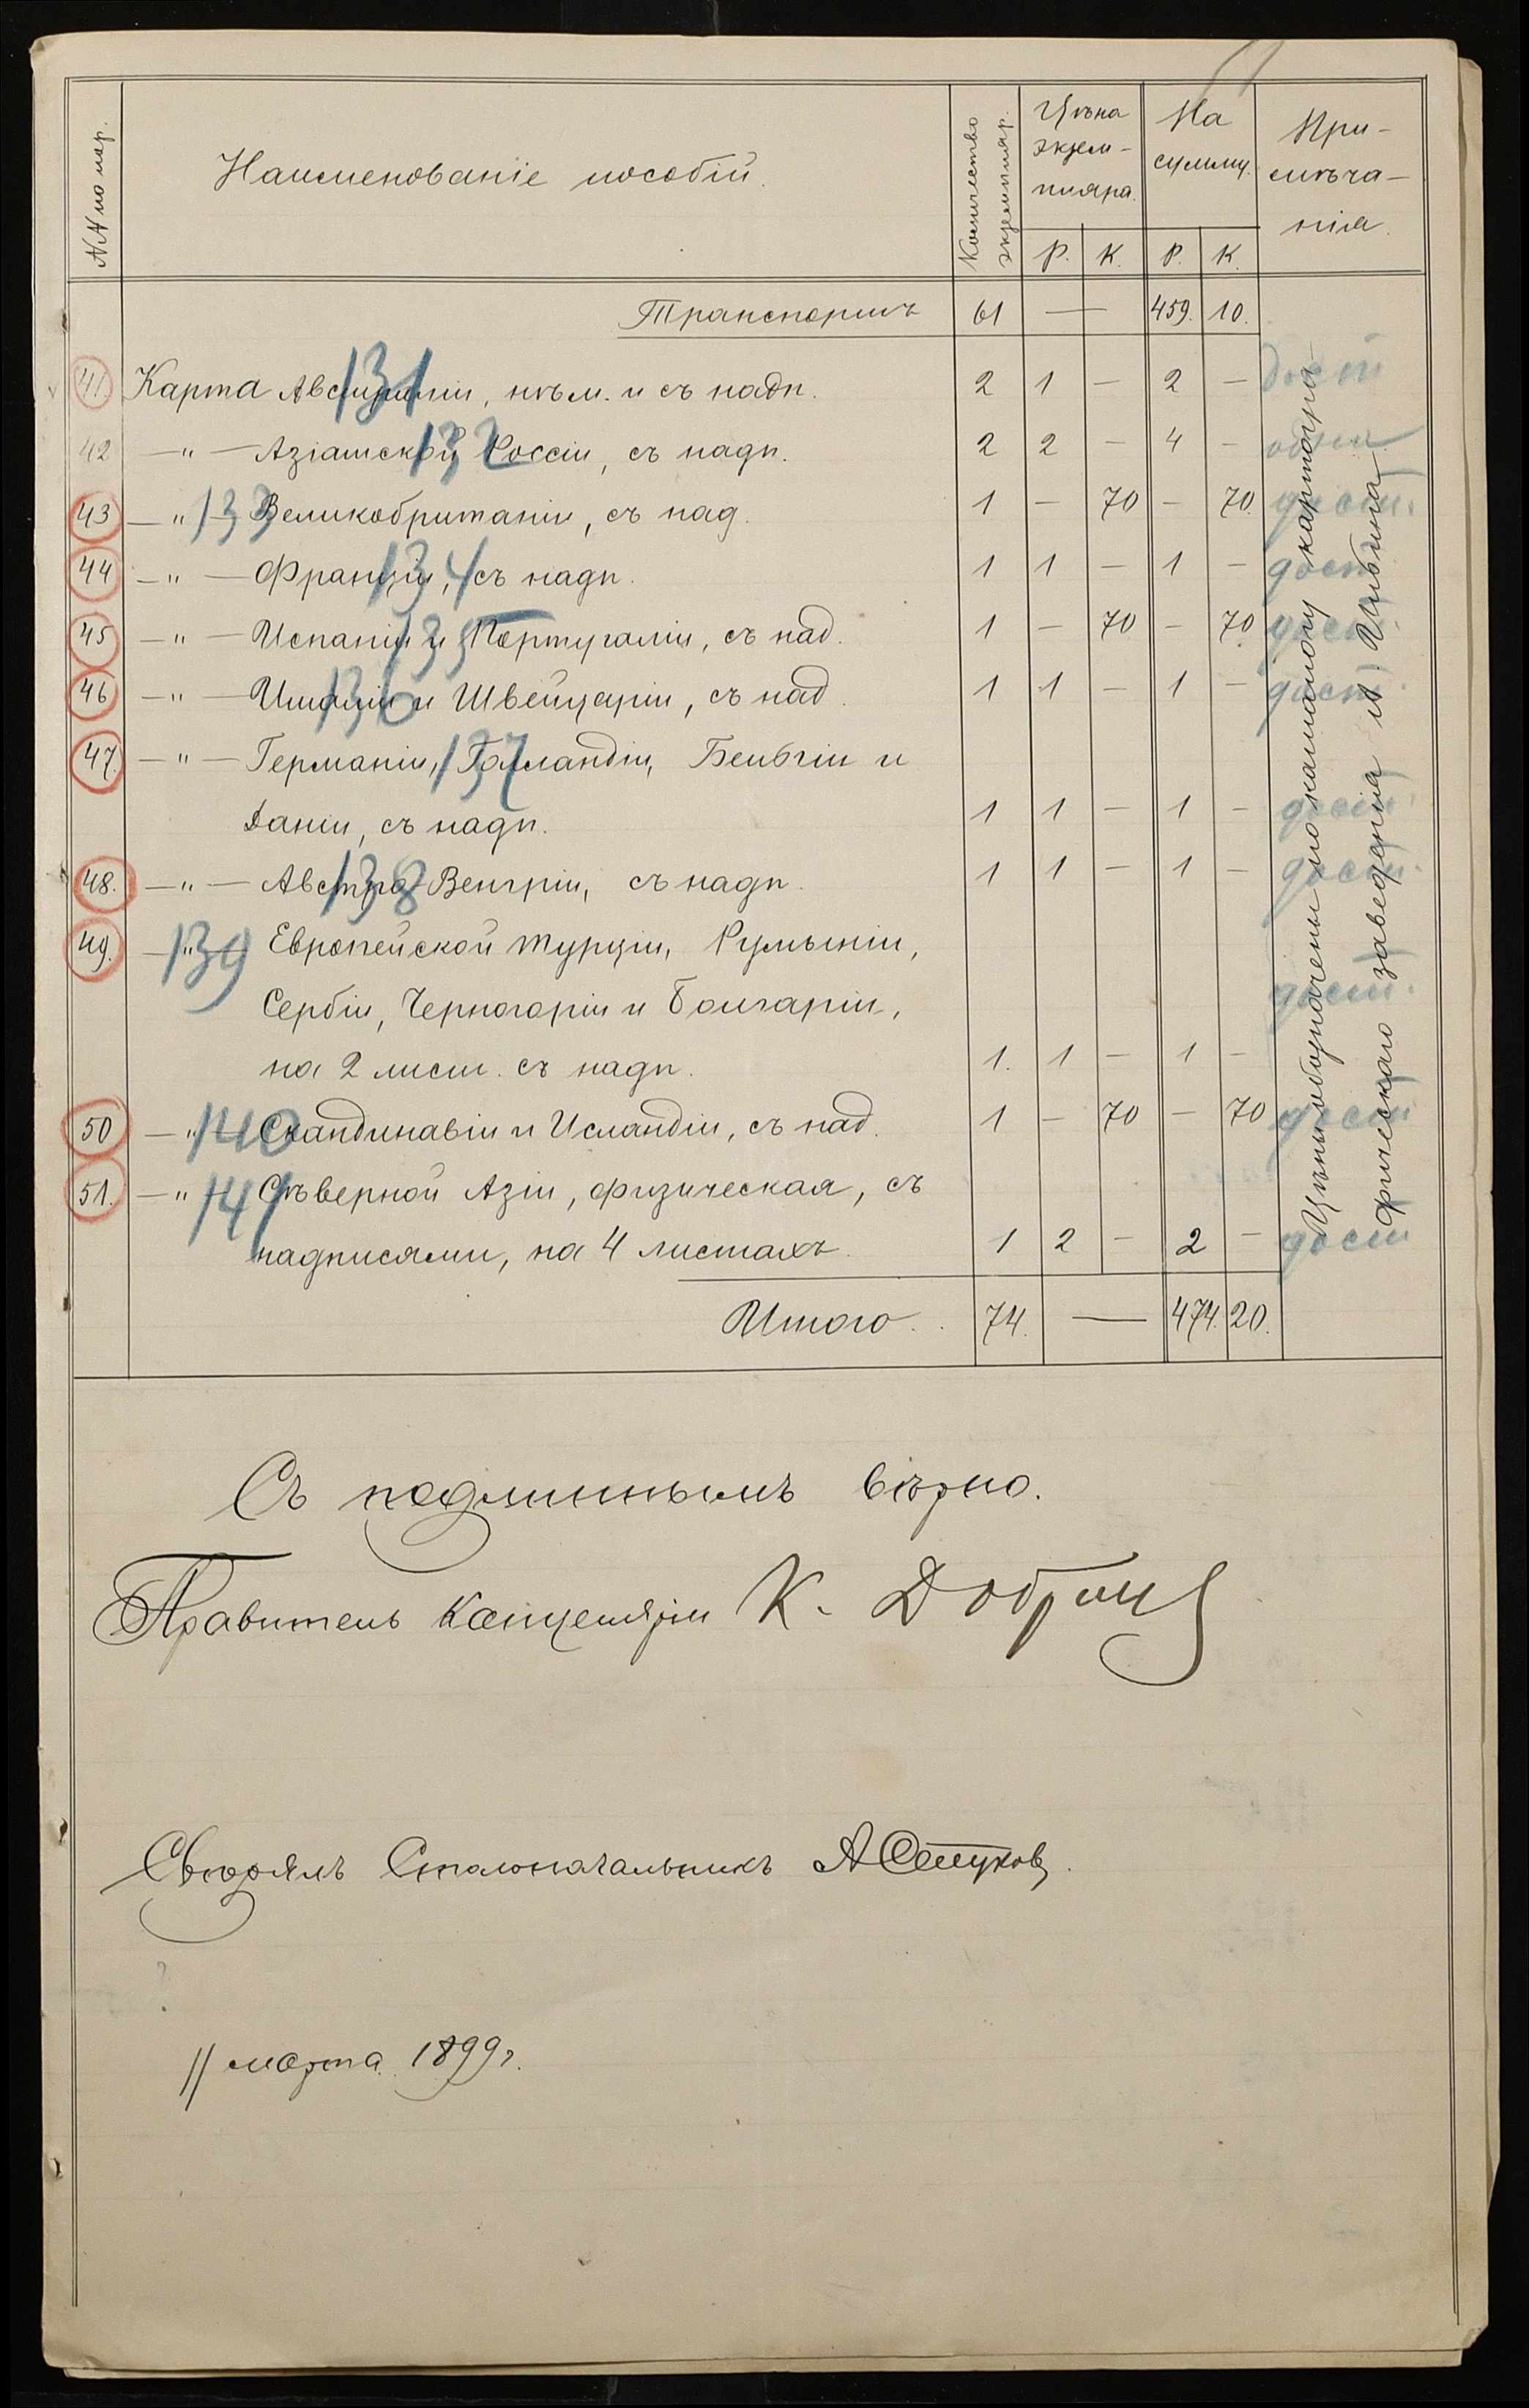 №№ по пор.
Наименованіе пособій.
Количество экземпляр.
Цѣна экзем-пляра.
На сумму.
При-мѣча-нія.
Р. К. Р. К.
Транспортъ 61 — 459. 10.
41. Карта Австраліи, нѣм. и съ надп. 131 2 1 — 2 — дост
42 —„— Азіатской Россіи, съ надп. 132 2 2 — 4 — одна
43 —„— Великобританіи, съ над. 133 1 — 70 — 70. дост.
44 —„— Франціи, съ надп. 134 1 1 — 1 — дост
45 —„— Испаніи и Португаліи, съ над. 135 1 — 70 — 70 дост
46 —„— Италіи и Швейцаріи, съ над. 136 1 1 — 1 — дост.
47. —„— Германіи, Голландіи, Бельгіи и 137
Даніи, съ надп. 1 1 — 1 — дост
48. —„— Австро-Венгріи, съ надп. 138 1 1 — 1 — дост.
49. —„— Европейской Турціи, Румыніи, 139
Сербіи, Черногоріи и Болгаріи, дост.
на 2 лист. съ надп. 1. 1 — 1 —
50 —„— Скандинавіи и Исландіи, съ над. 140 1 — 70 — 70 дост
51. —„— Сѣверной Азіи, физическая, съ 141
надписями, на 4 листахъ. 1 2 — 2 — дост
Цѣны обозначены по каталогу картогра-
фическаго заведенія Ильина
Итого . . 74. — 474. 20.
Съ подлиннымъ вѣрно.
Правитель Канцеляріи К.
Свѣрялъ Столоначальникъ А
?
11 марта 1899 г.